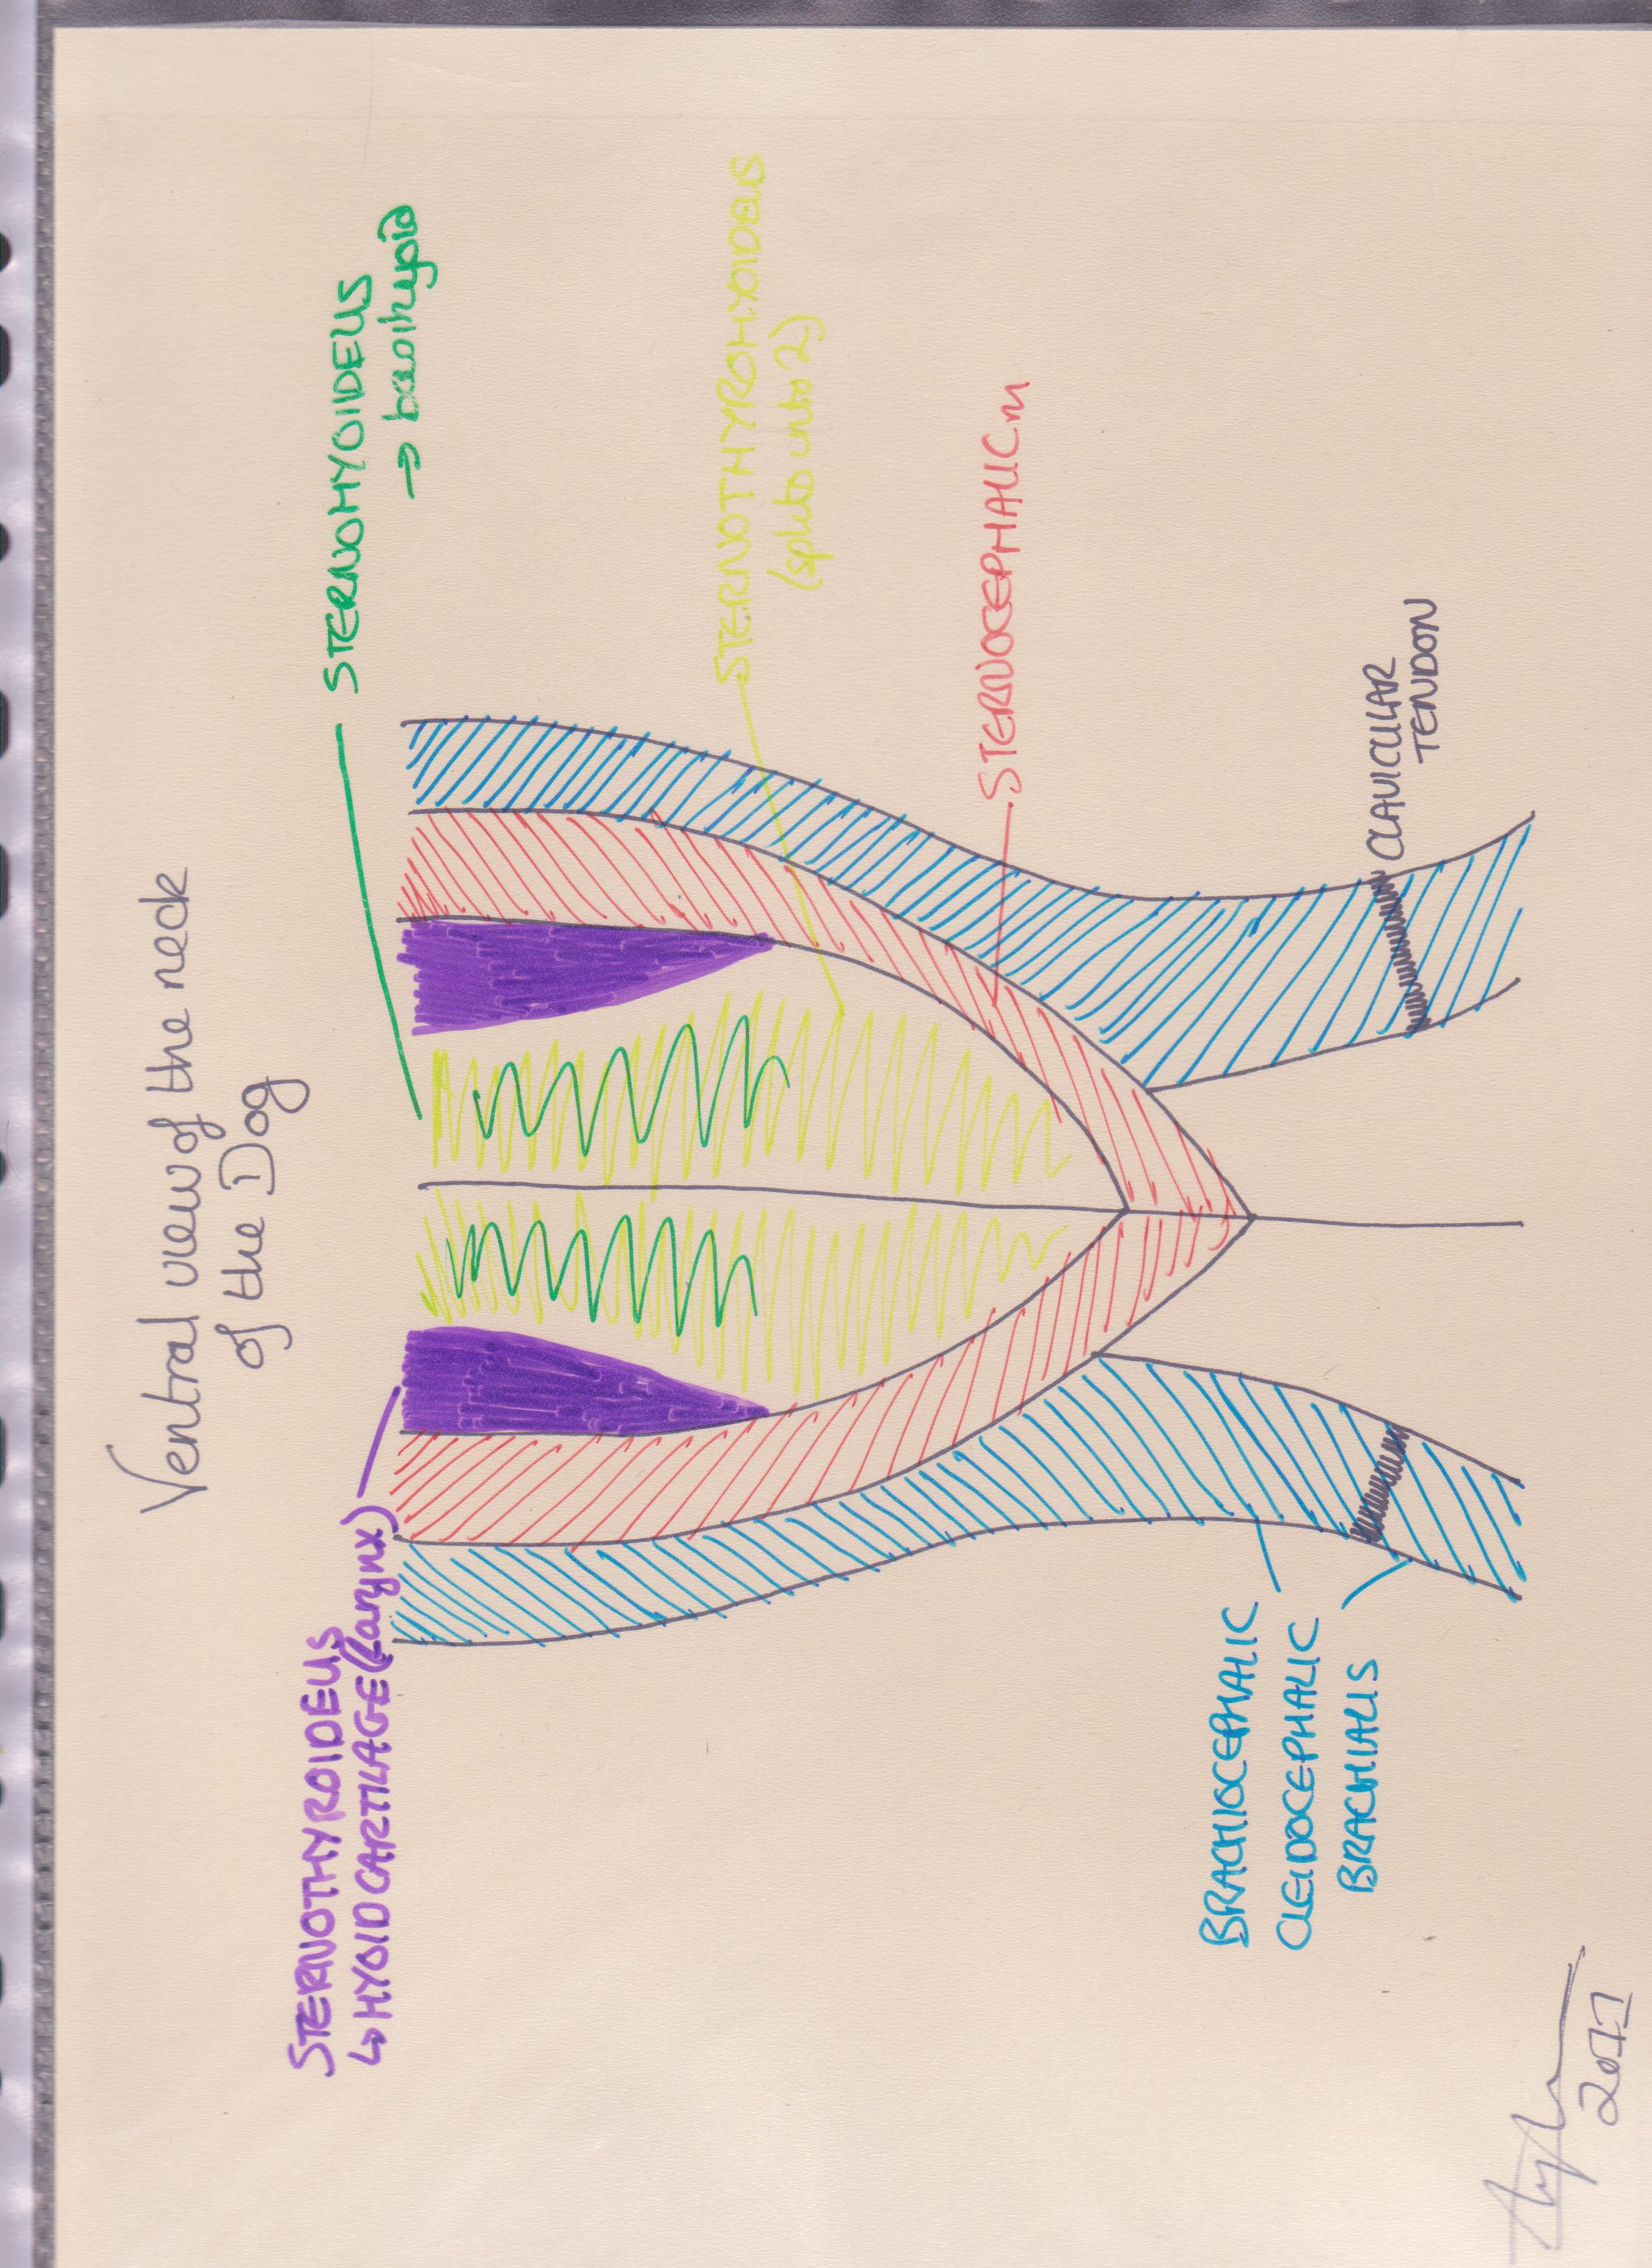 Ventral view of the neck
of the Dog
STERNOTHYROIDEUS
↳ HYOID CARTILAGE (Larynx)
STERNOHYOIDEUS
→ basihyoid
STERNOTHYROHYOIDEUS
(splits into 2)
STERNOCEPHALIC m
CLAVICULAR
TENDON
BRACHIOCEPHALIC
CLEIDOCEPHALIC
BRACHIALIS
2011